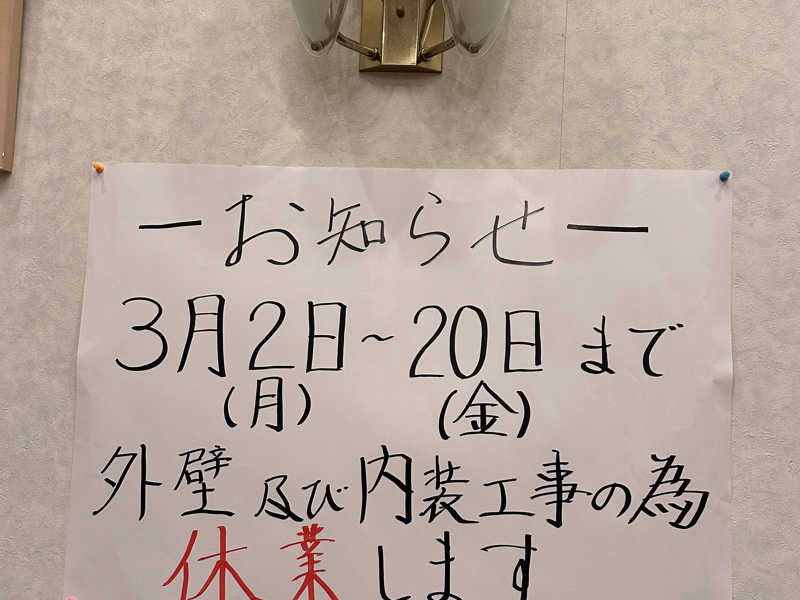 ーお知らせー
3月2日～20日まで
(月) (金)
外壁及び内装工事の為
休業します